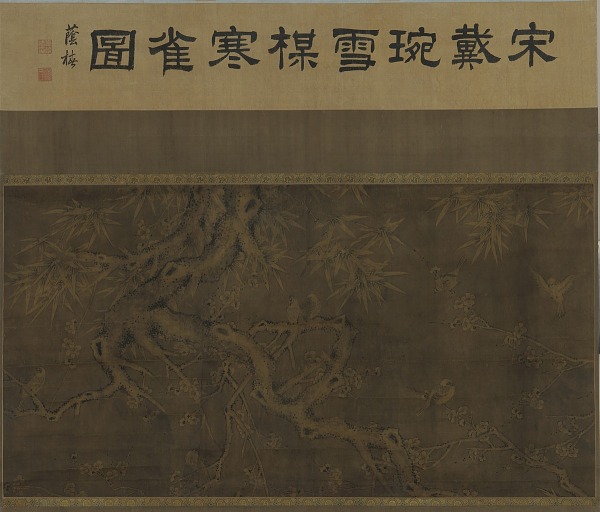 宋戴琬雪楳寒雀圖
蔭椿